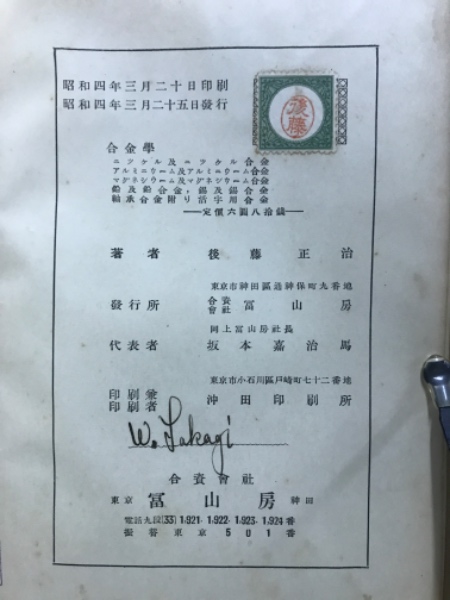 昭和四年三月二十日印刷
昭和四年三月二十五日發行
後藤
合金學
ニツケル及ニツケル合金
アルミニウーム及アルミニウーム合金
マグネシウーム及マグネシウーム合金
鉛及鉛合金，錫及錫合金
軸承合金附り活字用合金
定價六圓八拾錢
著者 後藤正治
東京市神田區通神保町九番地
發行所 合資會社 冨山房
同上冨山房社長
代表者 坂本嘉治馬
東京市小石川區戸崎町七十二番地
印刷兼印刷者 沖田印刷所
W. Takagi
合資會社
東京 冨山房 神田
電話九段(33) 1,921・1,922・1,923・1,924番
振替東京501番